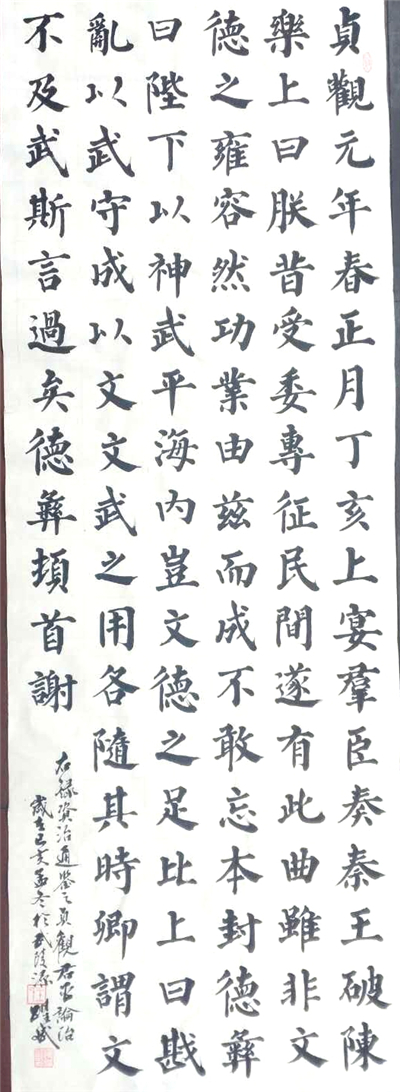 貞觀元年春正月丁亥上宴羣臣奏秦王破陳
樂上曰朕昔受委專征民間遂有此曲雖非文
德之雍容然功業由兹而成不敢忘本封德彝
曰陛下以神武平海内豈文德之足比上曰戡
亂以武守成以文文武之用各隨其時卿謂文
不及武斯言過矣德彝頓首謝
右録資治通鑒之貞觀君臣論治
歲在己亥孟冬於武陵源